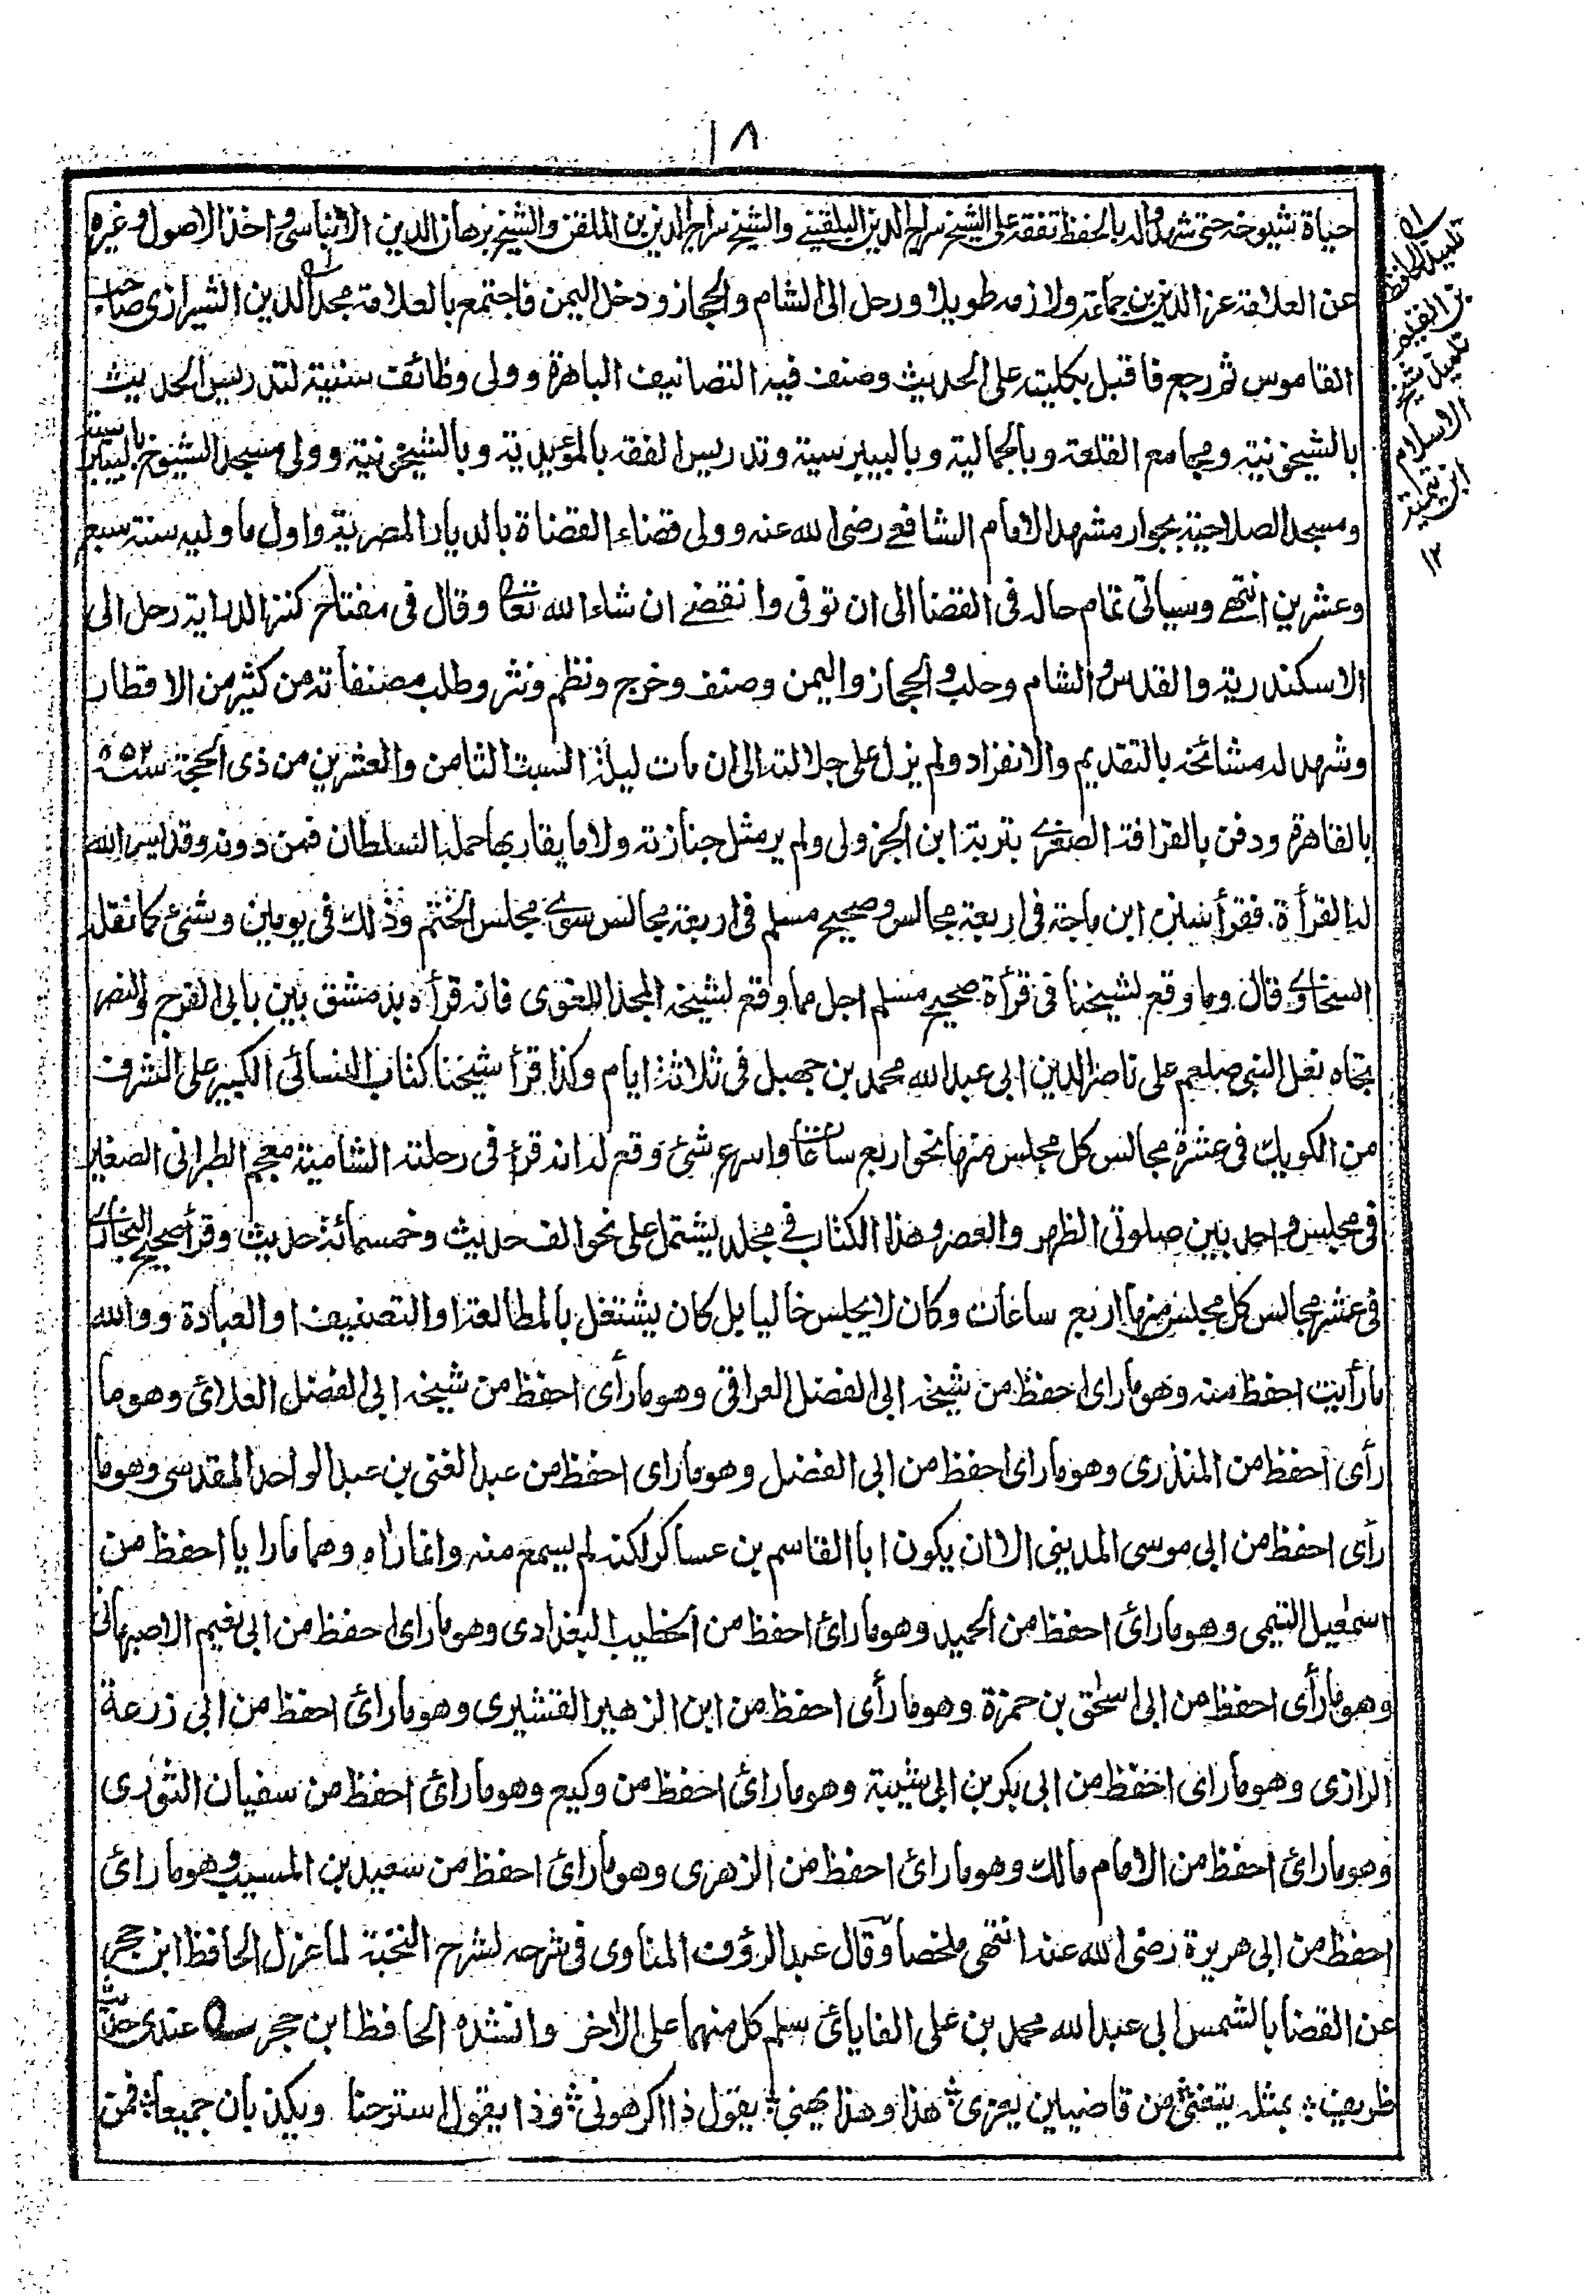 ١٨
حياة شيوخه حتى شهدوا له بالحفظ تفقه على الشيخ سراج الدين البلقيني والشيخ سراج الدين بن الملقن والشيخ برهان الدين الانباسي واخذ الاصول وغيره
عن العلامة عز الدين بن جماعة ولازمه طويلا ورحل الى الشام والحجاز ودخل اليمن فاجتمع بالعلامة مجد الدين الشيرازى صاحب
القاموس ثم رجع فاقبل بكليته على الحديث وصنف فيه التصانيف الباهرة وولى وظائف سنية لتدريس الحديث
بالشيخونية وبجامع القلعة وبالجمالية وبالبيبرسية وتدريس الفقه بالمؤيدية وبالشيخونية وولى مسجد الشيوخ بالبيبرسية
ومسجد الصلاحية بجوار مشهد الامام الشافعے رضى الله عنه وولى قضاء القضاة بالديار المصرية واول ما وليه سنة سبع
وعشرين انتهے وسياتى تمام حاله فى القضا الى ان توفى وانقضے ان شاء الله تعا وقال فى مفتاح كنز الدراية رحل الى
الاسكندرية والقدس والشام وحلب والحجاز واليمن وصنف وخرج ونظم ونثر وطلب مصنفاته من كثير من الاقطار
وشهد له مشائخه بالتقديم والانفراد ولم يزل على جلالته الى ان مات ليلة السبت الثامن والعشرين من ذى الحجة سنة ٨٥٢
بالقاهرة ودفن بالقرافة الصغرے بتربة ابن الجزولى ولم ير مثل جنازته ولا ما يقاربها حملها السلطان فمن دونه وقد ليسر الله
لنا القرأة فقرأ سنن ابن ماجة فى اربعة مجالس وصحيح مسلم فى اربعة مجالس سوے مجلس الختم وذلك فى يومين وشئ كما نقله
السخاوے وقال وما وقع لشيخنا فى قرأة صحيح مسلم اجل مما وقع لشيخه المجد اللغوى فانه قرأه بدمشق بين بابى الفرج والنصر
تجاه نعل النبى صلعم على ناصر الدين ابى عبد الله محمد بن جهبل فى ثلاثة ايام وكذا قرأ شيخنا كتاب النسائى الكبير على الشرف
من الكويك فى عشرة مجالس كل مجلس منها نحو اربع ساعات واسرع شئ وقع له انه قرأ فى رحلته الشامية معجم الطبرانى الصغير
فى مجلس واحد بين صلوتى الظهر والعصر وهذا الكتاب فے مجلد يشتمل على نحو الف حديث وخمسمائة حديث وقرأ صحيح البخارے
فى عشر مجالس كل مجلس منها اربع ساعات وكان لا يجلس خاليا بل كان يشتغل بالمطالعة او التصنيف او العبادة ووالله
ما رأيت احفظ منه وهو ما راى احفظ من شيخه ابى الفضل العراقى وهو ما رأى احفظ من شيخه ابى الفضل العلائى وهو ما
رأى احفظ من المنذرى وهو ما راى احفظ من ابى الفضل وهو ما راى احفظ من عبد الغنى بن عبد الواحد المقدسى وهو ما
رأى احفظ من ابى موسى المدينى الا ان يكون ابا القاسم بن عساكر لكنه لم يسمع منه وانما راه وهما ما رايا احفظ من
اسمعيل التيمى وهو ما رائ احفظ من الحميد وهو ما رائ احفظ من الخطيب البغدادى وهو ما راى احفظ من ابى نعيم الاصبهانى
وهو ما رأى احفظ من ابى اسحق بن حمزة وهو ما رأى احفظ من ابن الزهير القشيرى وهو ما رائ احفظ من ابى زرعة
الرازى وهو ما راى احفظ من ابى بكر بن ابى شيبة وهو ما رائ احفظ من وكيع وهو ما رائ احفظ من سفيان الثورى
وهو ما رائ احفظ من الامام مالك وهو ما رائ احفظ من الزهرى وهو ما رائ احفظ من سعيد بن المسيب وهو ما رائ
احفظ من ابى هريرة رضى الله عنه انتهى ملخصا وقال عبد الرؤف المناوى فى شرحه لشرح النخبة لما عزل الحافظ ابن حجر
عن القضا بالشمس ابى عبد الله محمد بن على القاياتى سلم كل منهما على الاخر وانشده الحافظ ابن حجر عندى حديث
ظريف بمثله يتغنى من قاضيين يعزى هذا وهذا يهنى يقول ذا اكرهونى وذا يقول استرحنا ويكذبان جميعا فمن
تلميذ الحافظ
بن القيم
تلميذ شيخ
الاسلام
ابن تيمية
١٢